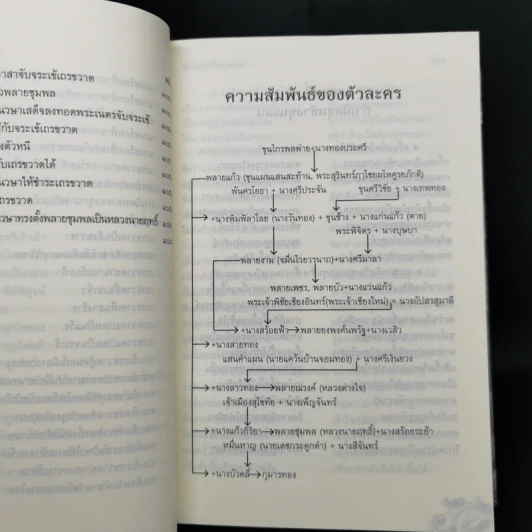 าสาจับจระเข้เถรขวาด
วพลายชุมพล
นวษาเสด็จลงทอดพระเนตรจับจระเข้
ู้กับจระเข้เถรขวาด
งตัวหนี
ับเถรขวาดได้
นวษาให้ชำระเถรขวาด
นวษาทรงตั้งพลายชุมพลเป็นหลวงนายฤทธิ์
ความสัมพันธ์ของตัวละคร
ขุนไกรพลพ่าย+นางทองประศรี
พลายแก้ว (ขุนแผนแสนสะท้าน, พระสุรินทร์ฦๅไชยมไหสูรยภักดี)
พันศรโยธา + นางศรีประจัน ขุนศรีวิชัย + นางเทพทอง
+นางพิมพิลาไลย (นางวันทอง) + ขุนช้าง + นางแก่นแก้ว (ตาย)
พระพิจิตร + นางบุษบา
พลายงาม (จมื่นไวยวรนาถ)+นางศรีมาลา
พลายเพชร, พลายบัว+นางแว่นแก้ว
พระเจ้าพิชัยเชียงอินทร์(พระเจ้าเชียงใหม่) + นางอัปสรสุมาลี
+นางสร้อยฟ้า พลายยงพงศ์นพรัฐ+นางเวสิว
+นางสายทอง
แสนคำแมน (นายแคว้นบ้านจอมทอง) + นางศรีเงินยวง
+นางลาวทอง พลายณรงค์ (หลวงต่างใจ)
เจ้าเมืองสุโขทัย + นางเพ็ญจันทร์
+นางแก้วกิริยา พลายชุมพล (หลวงนายฤทธิ์)+นางสร้อยระย้า
หมื่นหาญ (นายเดชกระดูกดำ) + นางสีจันทร์
+นางบัวคลี่ กุมารทอง